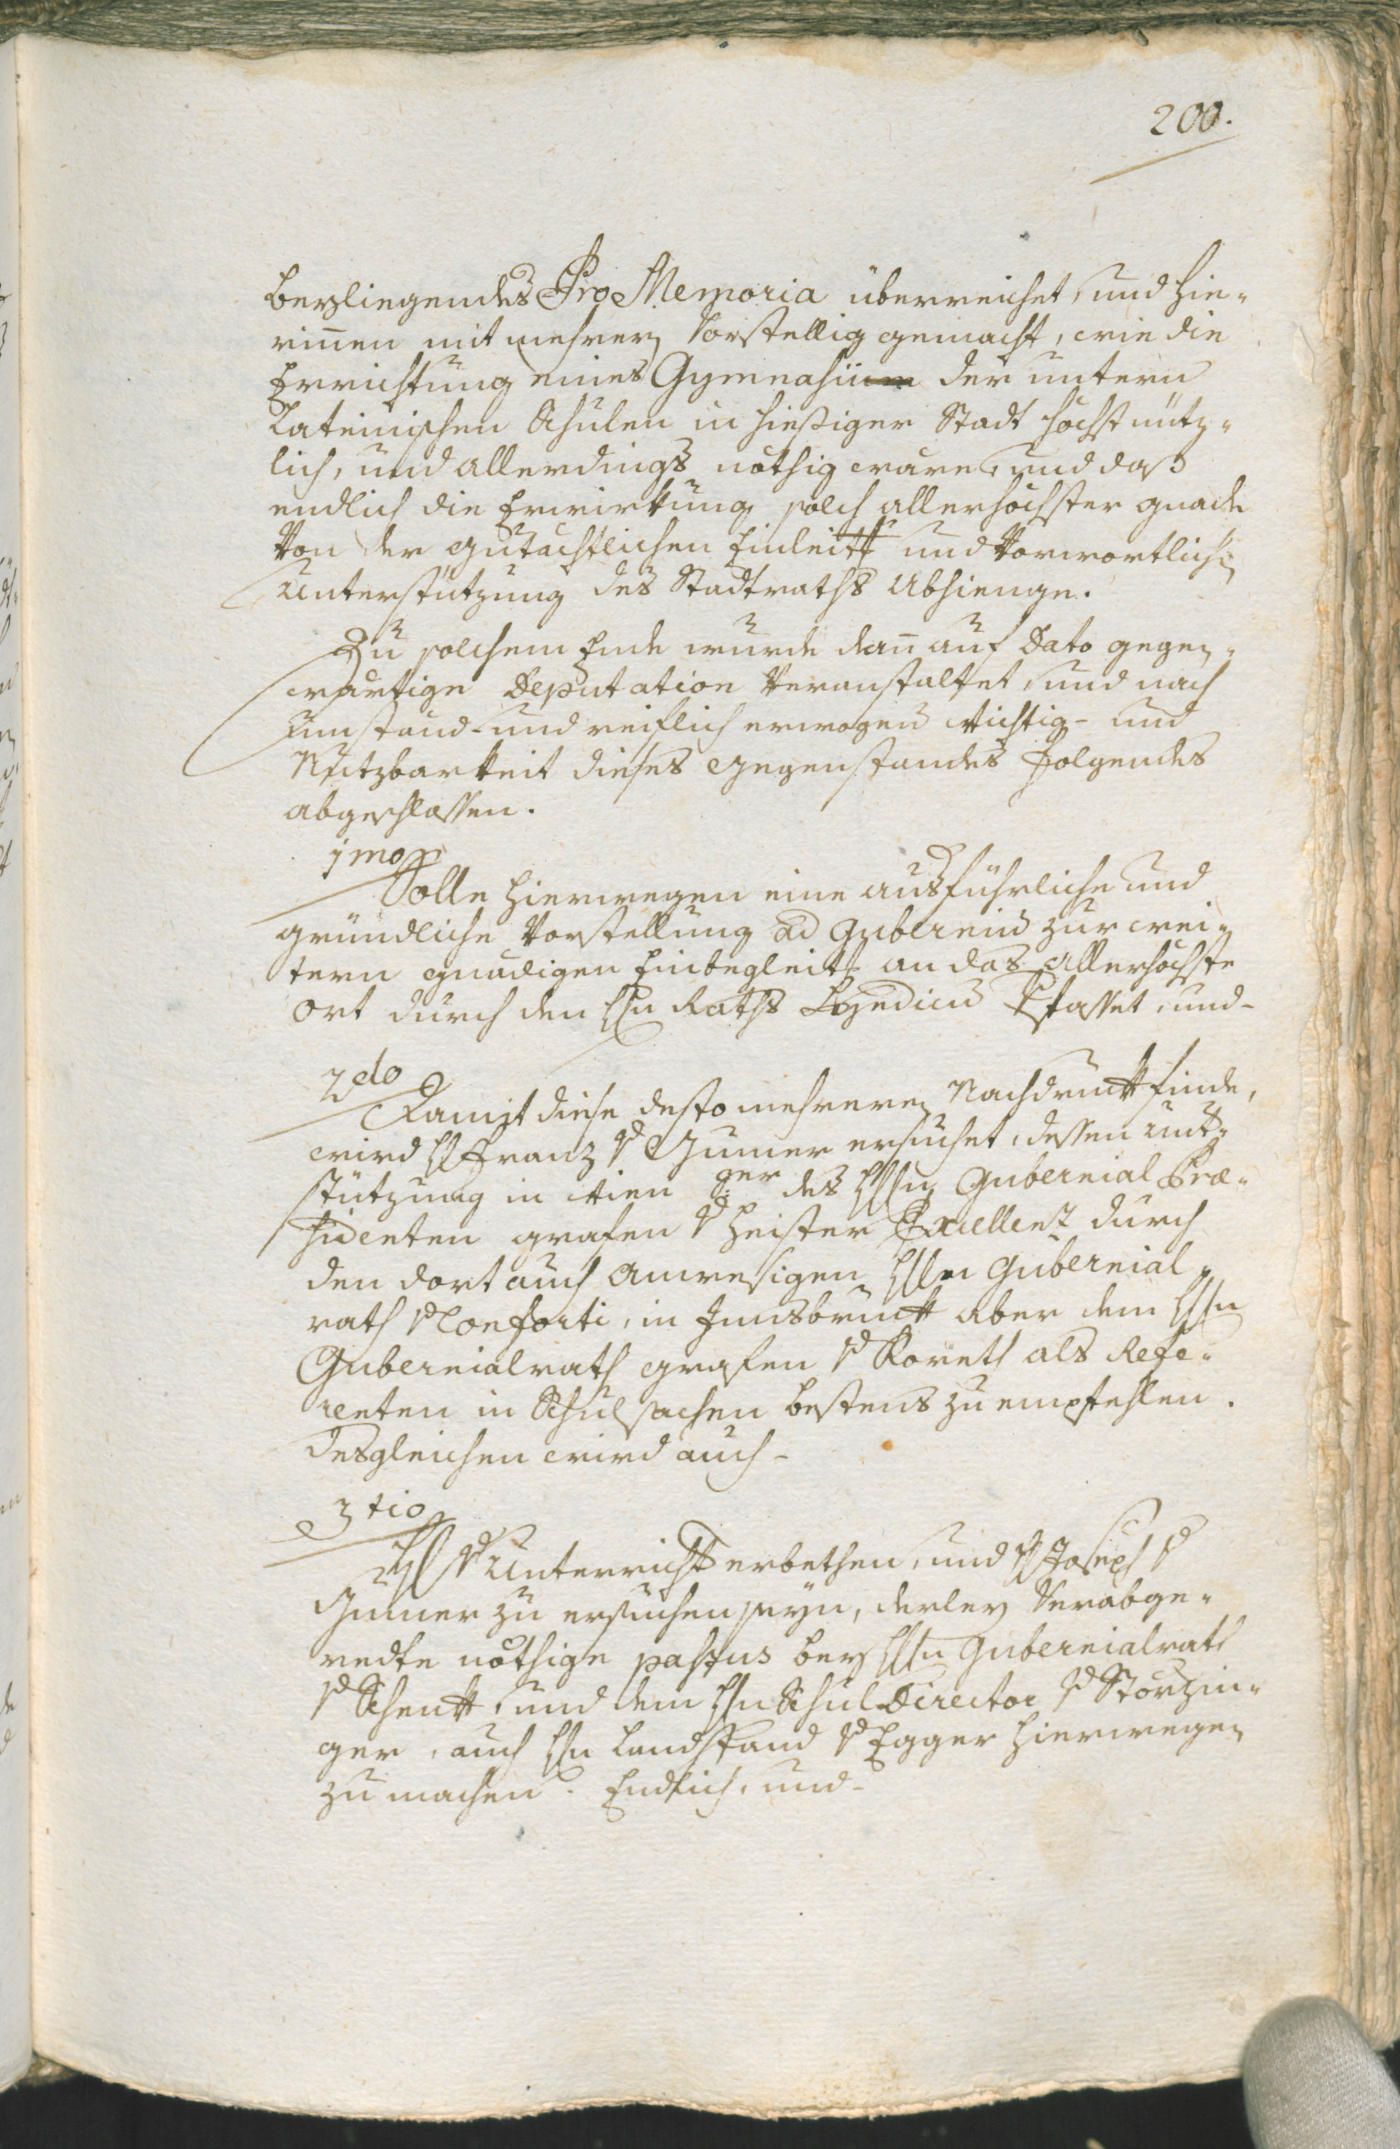 200.
beyliegendes Pro Memoria überreichet, und hie-
rinnen mit mehrern Vorstellig gemacht, wie die
Errichtung eines Gymnasii der untern
Lateinischen Schulen in hießiger Stadt höchst nütz-
lich, und allerdings nöthig wäre, und daß
endlich die Erwirkung solch allerhöchster gnade
Von der gutächtlichen Einleitt und Vorwortlich
Unterstützung des Stadtraths Abhienge.
Zu solchem Ende wurde dann auf Dato gegen-
wärtige Deputation Veranstaltet, und nach
umständ- und reiflich erwogen Wichtig- und
Nutzbarkeit dieses gegenstandes Folgendes
abgeschlossen.
1mo
Solle hierwegen eine ausführliche und
gründliche Vorstellung ad Guberniu zur wei-
tern gnädigen Einbegleitt an das Allerhöchste
Ort durch den Hn Raths Syndicu Vfasset, und-
2do
Damit diese desto mehreren Nachdruckh finde,
wird H Franz v Gumer ersuchet, dessen unt-
stützung in Wien des Hn Gubernial Præ-
sidenten grafen v Heister Excellenz durch
den dort auch Anwesigen Hn Gubernial-
rath v Conforti, in Innsbruckh aber dem Hn
Gubernialrath grafen v Koreth als Refe-
renten in Schulsachen bestens zu empfehlen.
Desgleichen wird auch-
3tio
H v Unterricht erbethen, und H Joseph v
Gumer zu ersuchen seyn, derley Verabge-
redte nöthige passus bey Hn Gubernialrath
v Schenkh, und dem Hn Schul Director v Störzin-
ger, auch Hn Landstand v Egger hierwegen
zu machen. Endlich, und-